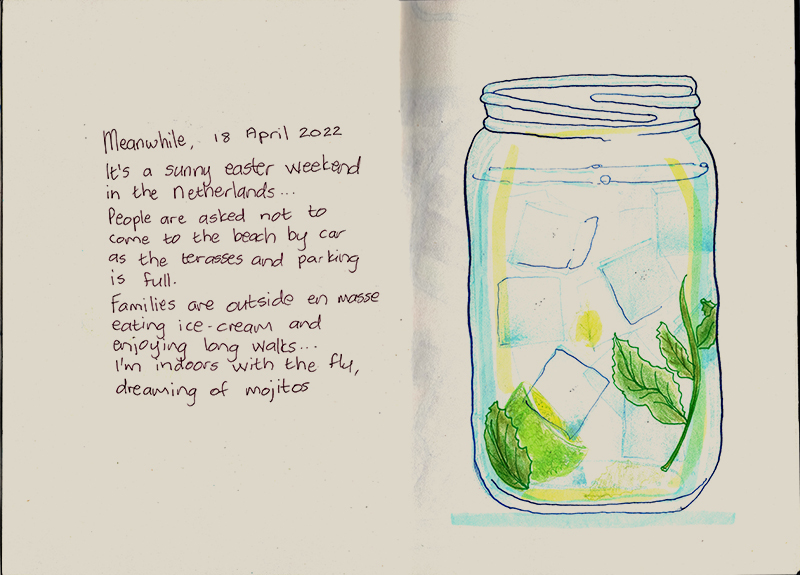 Meanwhile, 18 April 2022
It's a sunny easter weekend
in the Netherlands...
People are asked not to
come to the beach by car
as the terasses and parking
is full.
Families are outside en masse
eating ice-cream and
enjoying long walks...
I'm indoors with the fly,
dreaming of mojitos